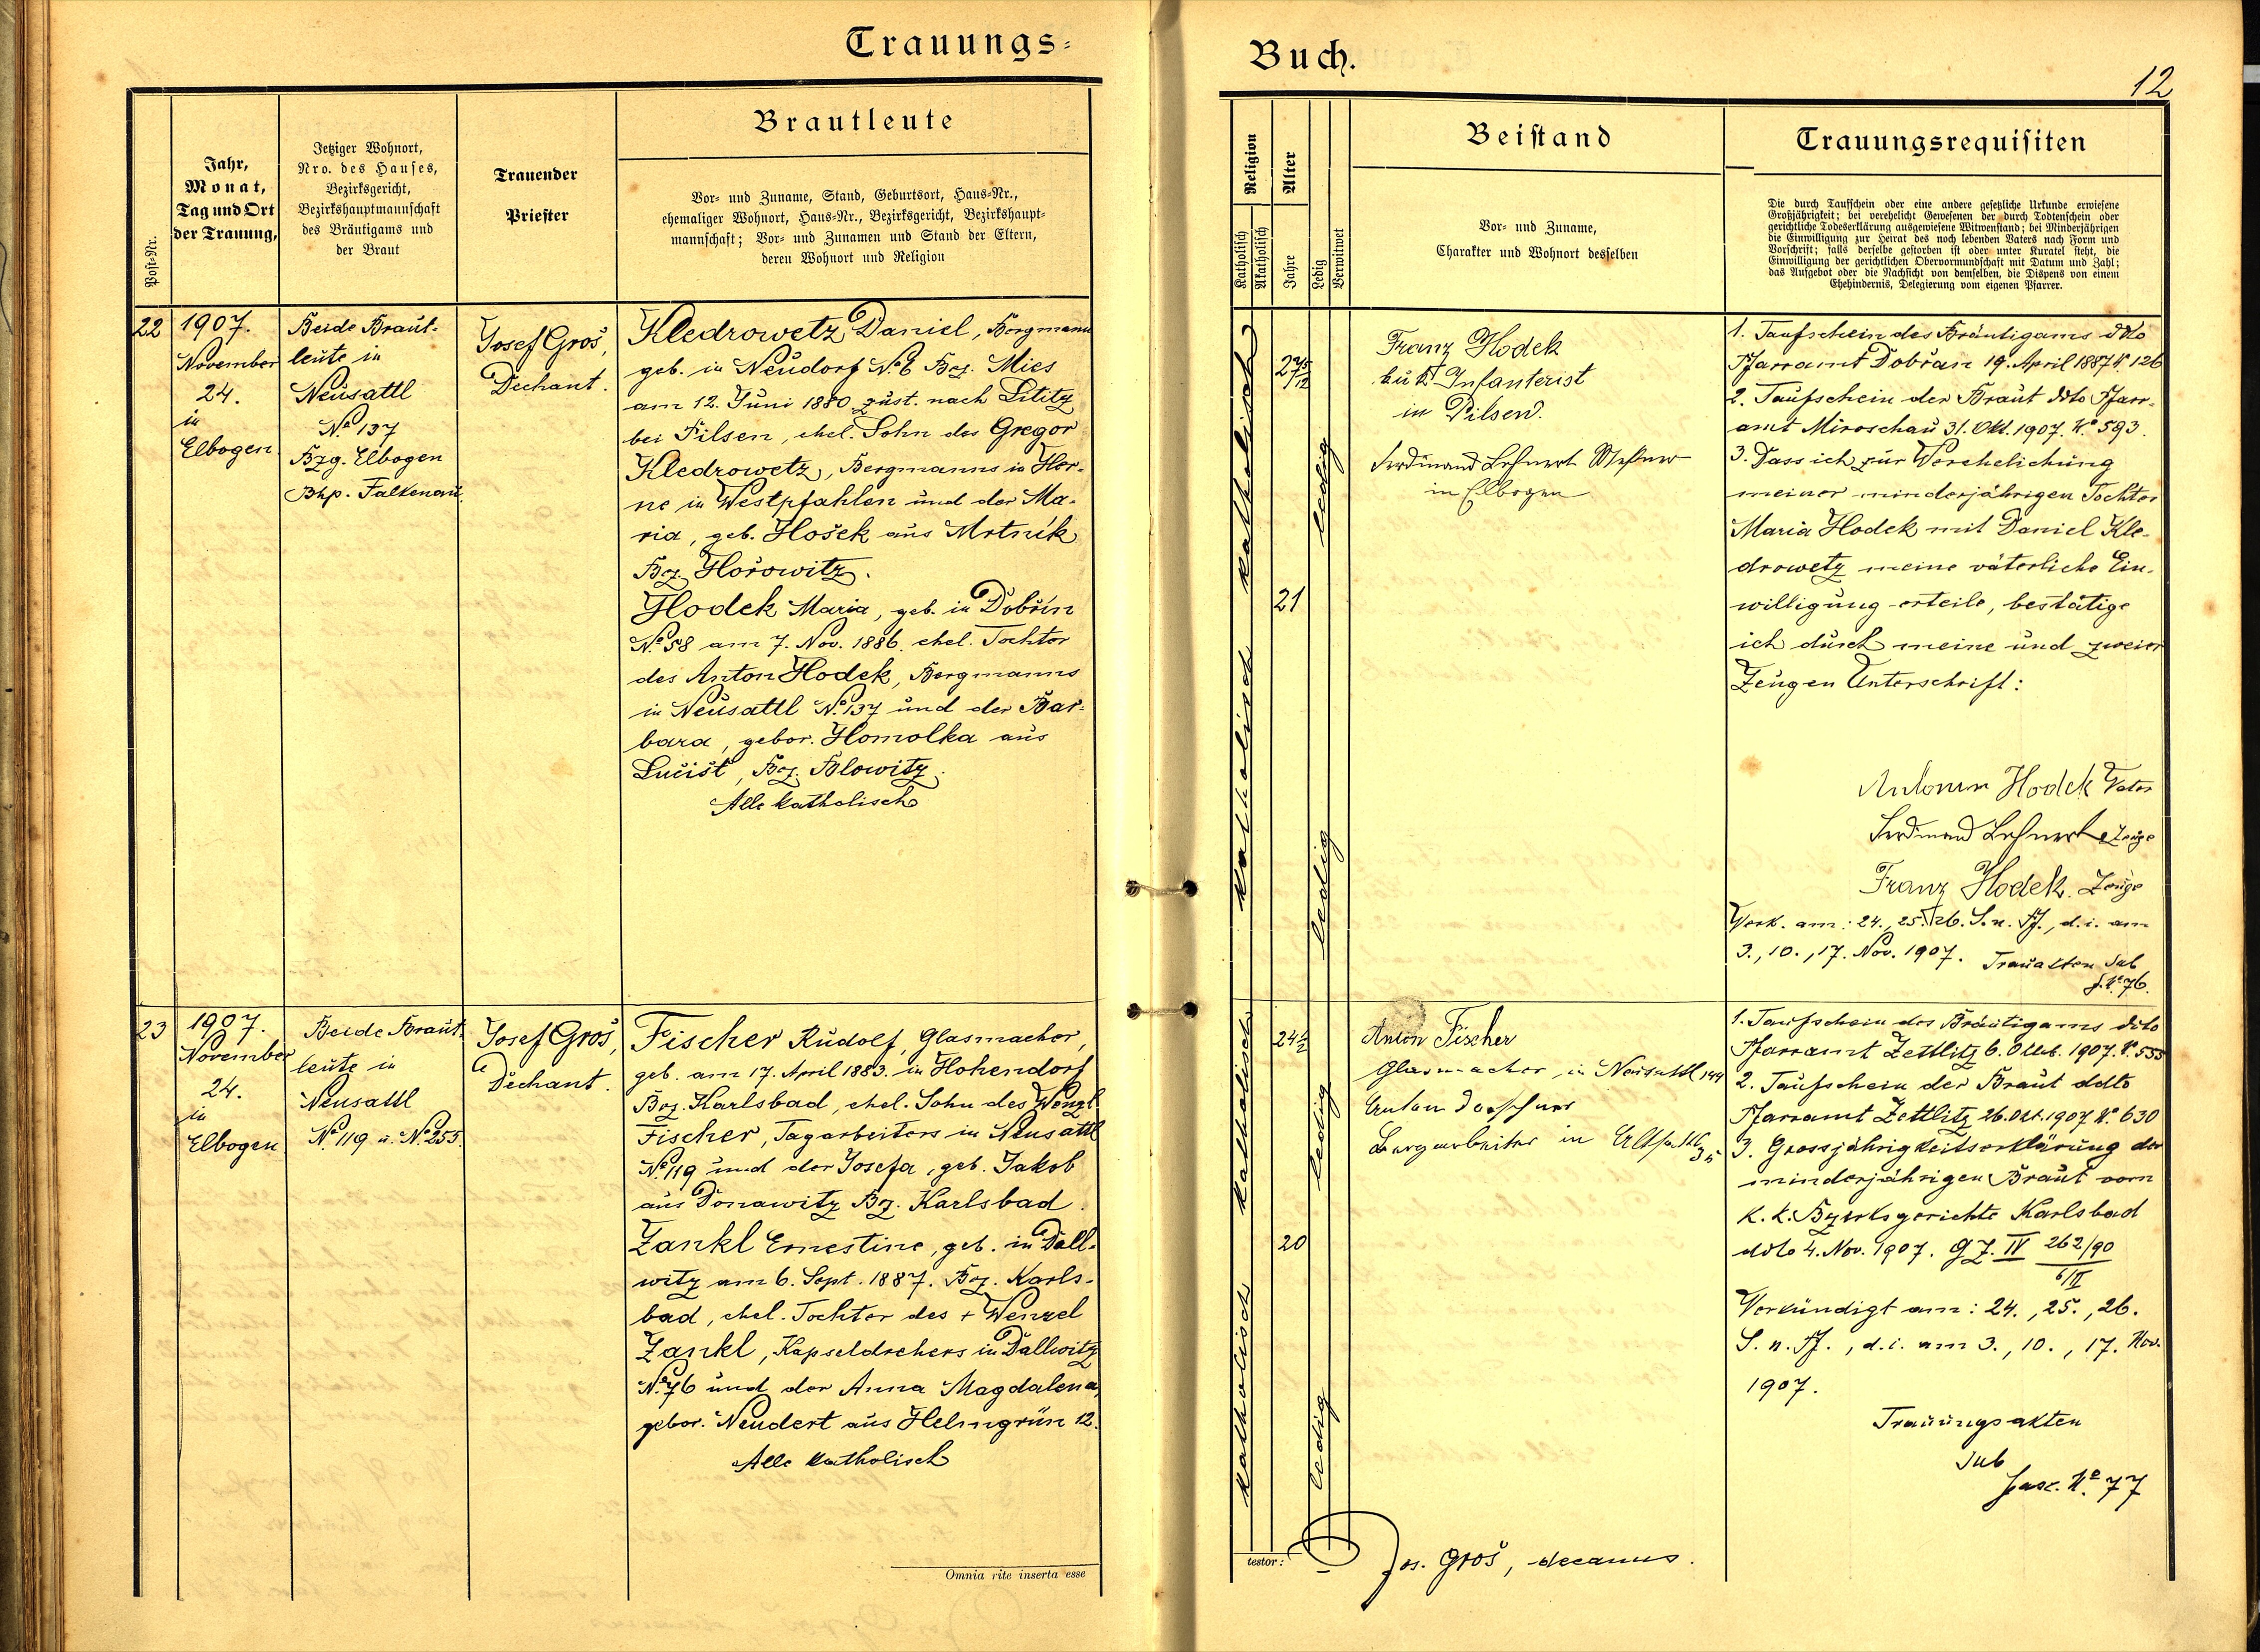 Trauungs=
Buch.
12
Post-Nr.
Jahr,
Monat,
Tag und Ort
der Trauung,
Jetziger Wohnort,
Nro. des Hauses,
Bezirksgericht,
Bezirkshauptmannschaft
des Bräutigams und
der Braut
Trauender
Priester
Brautleute
Vor- und Zuname, Stand, Geburtsort, Haus-Nr.,
ehemaliger Wohnort, Haus-Nr., Bezirksgericht, Bezirkshaupt-
mannschaft; Vor- und Zunamen und Stand der Eltern,
deren Wohnort und Religion
Religion
Katholisch
Akatholisch
Alter
Jahre
Ledig
Verwitwet
Beistand
Vor- und Zuname,
Charakter und Wohnort desselben
Trauungsrequisiten
Die durch Taufschein oder eine andere gesetzliche Urkunde erwiesene
Großjährigkeit; bei verehelicht Gewesenen der durch Todtenschein oder
gerichtliche Todeserklärung ausgewiesene Witwenstand; bei Minderjährigen
die Einwilligung zur Heirat des noch lebenden Vaters nach Form und
Vorschrift; falls derselbe gestorben ist oder unter Kuratel steht, die
Einwilligung der gerichtlichen Obervormundschaft mit Datum und Zahl;
das Aufgebot oder die Nachsicht von demselben, die Dispens von einem
Ehehindernis, Delegierung vom eigenen Pfarrer.
22
1907.
November
24.
in
Elbogen
Beide Braut-
leute in
Neusattl
No 137
Bzg. Elbogen
Bhp. Falkenau
Josef Groš,
Dechant.
Kledrowetz Daniel, Bergmann
geb. in Neudorf No 6 Bez. Mies
am 12. Juni 1880 zust. nach Lititz
bei Pilsen, ehel. Sohn des Gregor
Kledrowetz, Bergmanns in Her-
ne in Westpfahlen und der Ma-
ria, geb. Hošek aus Mrtnik
Bez. Hořowitz.
Hodek Maria, geb. in Dobřin
No 58 am 7. Nov. 1886. ehel. Tochter
des Anton Hodek, Bergmanns
in Neusattl No 137 und der Bar-
bara, gebor. Homolka aus
Lučišt, Bez. Blowitz.
Alle katholisch
katholisch
katholisch
27 5/12
21
ledig
ledig
Franz Hodek
k u k Infanterist
in Pilsen.
Ferdinand Lehnert Meßner
in Elbogen
1. Taufschein des Bräutigams ddto
Pfarramt Dobřan 19. April 1887 No 126
2. Taufschein der Braut ddto Pfarr-
amt Miroschau 31. Okt. 1907. No 593.
3. Dass ich zur Verehelichung
meiner minderjährigen Tochter
Maria Hodek mit Daniel Kle-
drowetz meine väterliche Ein-
willigung erteile, bestätige
ich durch meine und zweier
Zeugen Unterschrift:
Antonin Hodek Vater
Ferdinand Lehnert Zeuge
Franz Hodek. Zeuge
Verk. am: 24., 25., 26. S. n. Pf., d. i. am
3., 10., 17. Nov. 1907. Trauakten sub
f. No 76.
23
1907.
November
24.
in
Elbogen
Beide Braut-
leute in
Neusattl
No 119 u. No 255.
Josef Groš,
Dechant.
Fischer Rudolf, Glasmacher,
geb. am 17. April 1883. in Hohendorf
Bez. Karlsbad, ehel. Sohn des Wenzl
Fischer, Tagarbeiters in Neusattl
No 119 und der Josefa, geb. Jakob
aus Donawitz Bz. Karlsbad.
Zankl Ernestine, geb. in Dall-
witz am 6. Sept. 1887. Bez. Karls-
bad, ehel. Tochter des + Wenzel
Zankl, Kapseldrehers in Dallwitz
No 76 und der Anna Magdalena,
gebor. Neudert aus Helmgrün 12.
Alle katholisch
katholisch
katholisch
24 1/2
20
ledig
ledig
Anton Fischer
Glasmacher, in Neusattl 144
Anton
Bergarbeiter in Altsattl
35
1. Taufschein des Bräutigams ddto
Pfarramt Zettlitz 6. Okt. 1907. No 555
2. Taufschein der Braut ddto
Pfarramt Zettlitz 26. Okt. 1907 No 630
3. Grossjährigkeitserklärung der
minderjährigen Braut vom
k. k. Bezirksgerichte Karlsbad
ddto 4. Nov. 1907. G Z. IV 262/90
6/II
Verkündigt am: 24., 25., 26.
S. n. Pf., d. i. am 3., 10., 17. Nov.
1907.
Trauungsakten
sub
fasc. No 77
Omnia rite inserta esse
testor:
Jos. Groš, decanus.